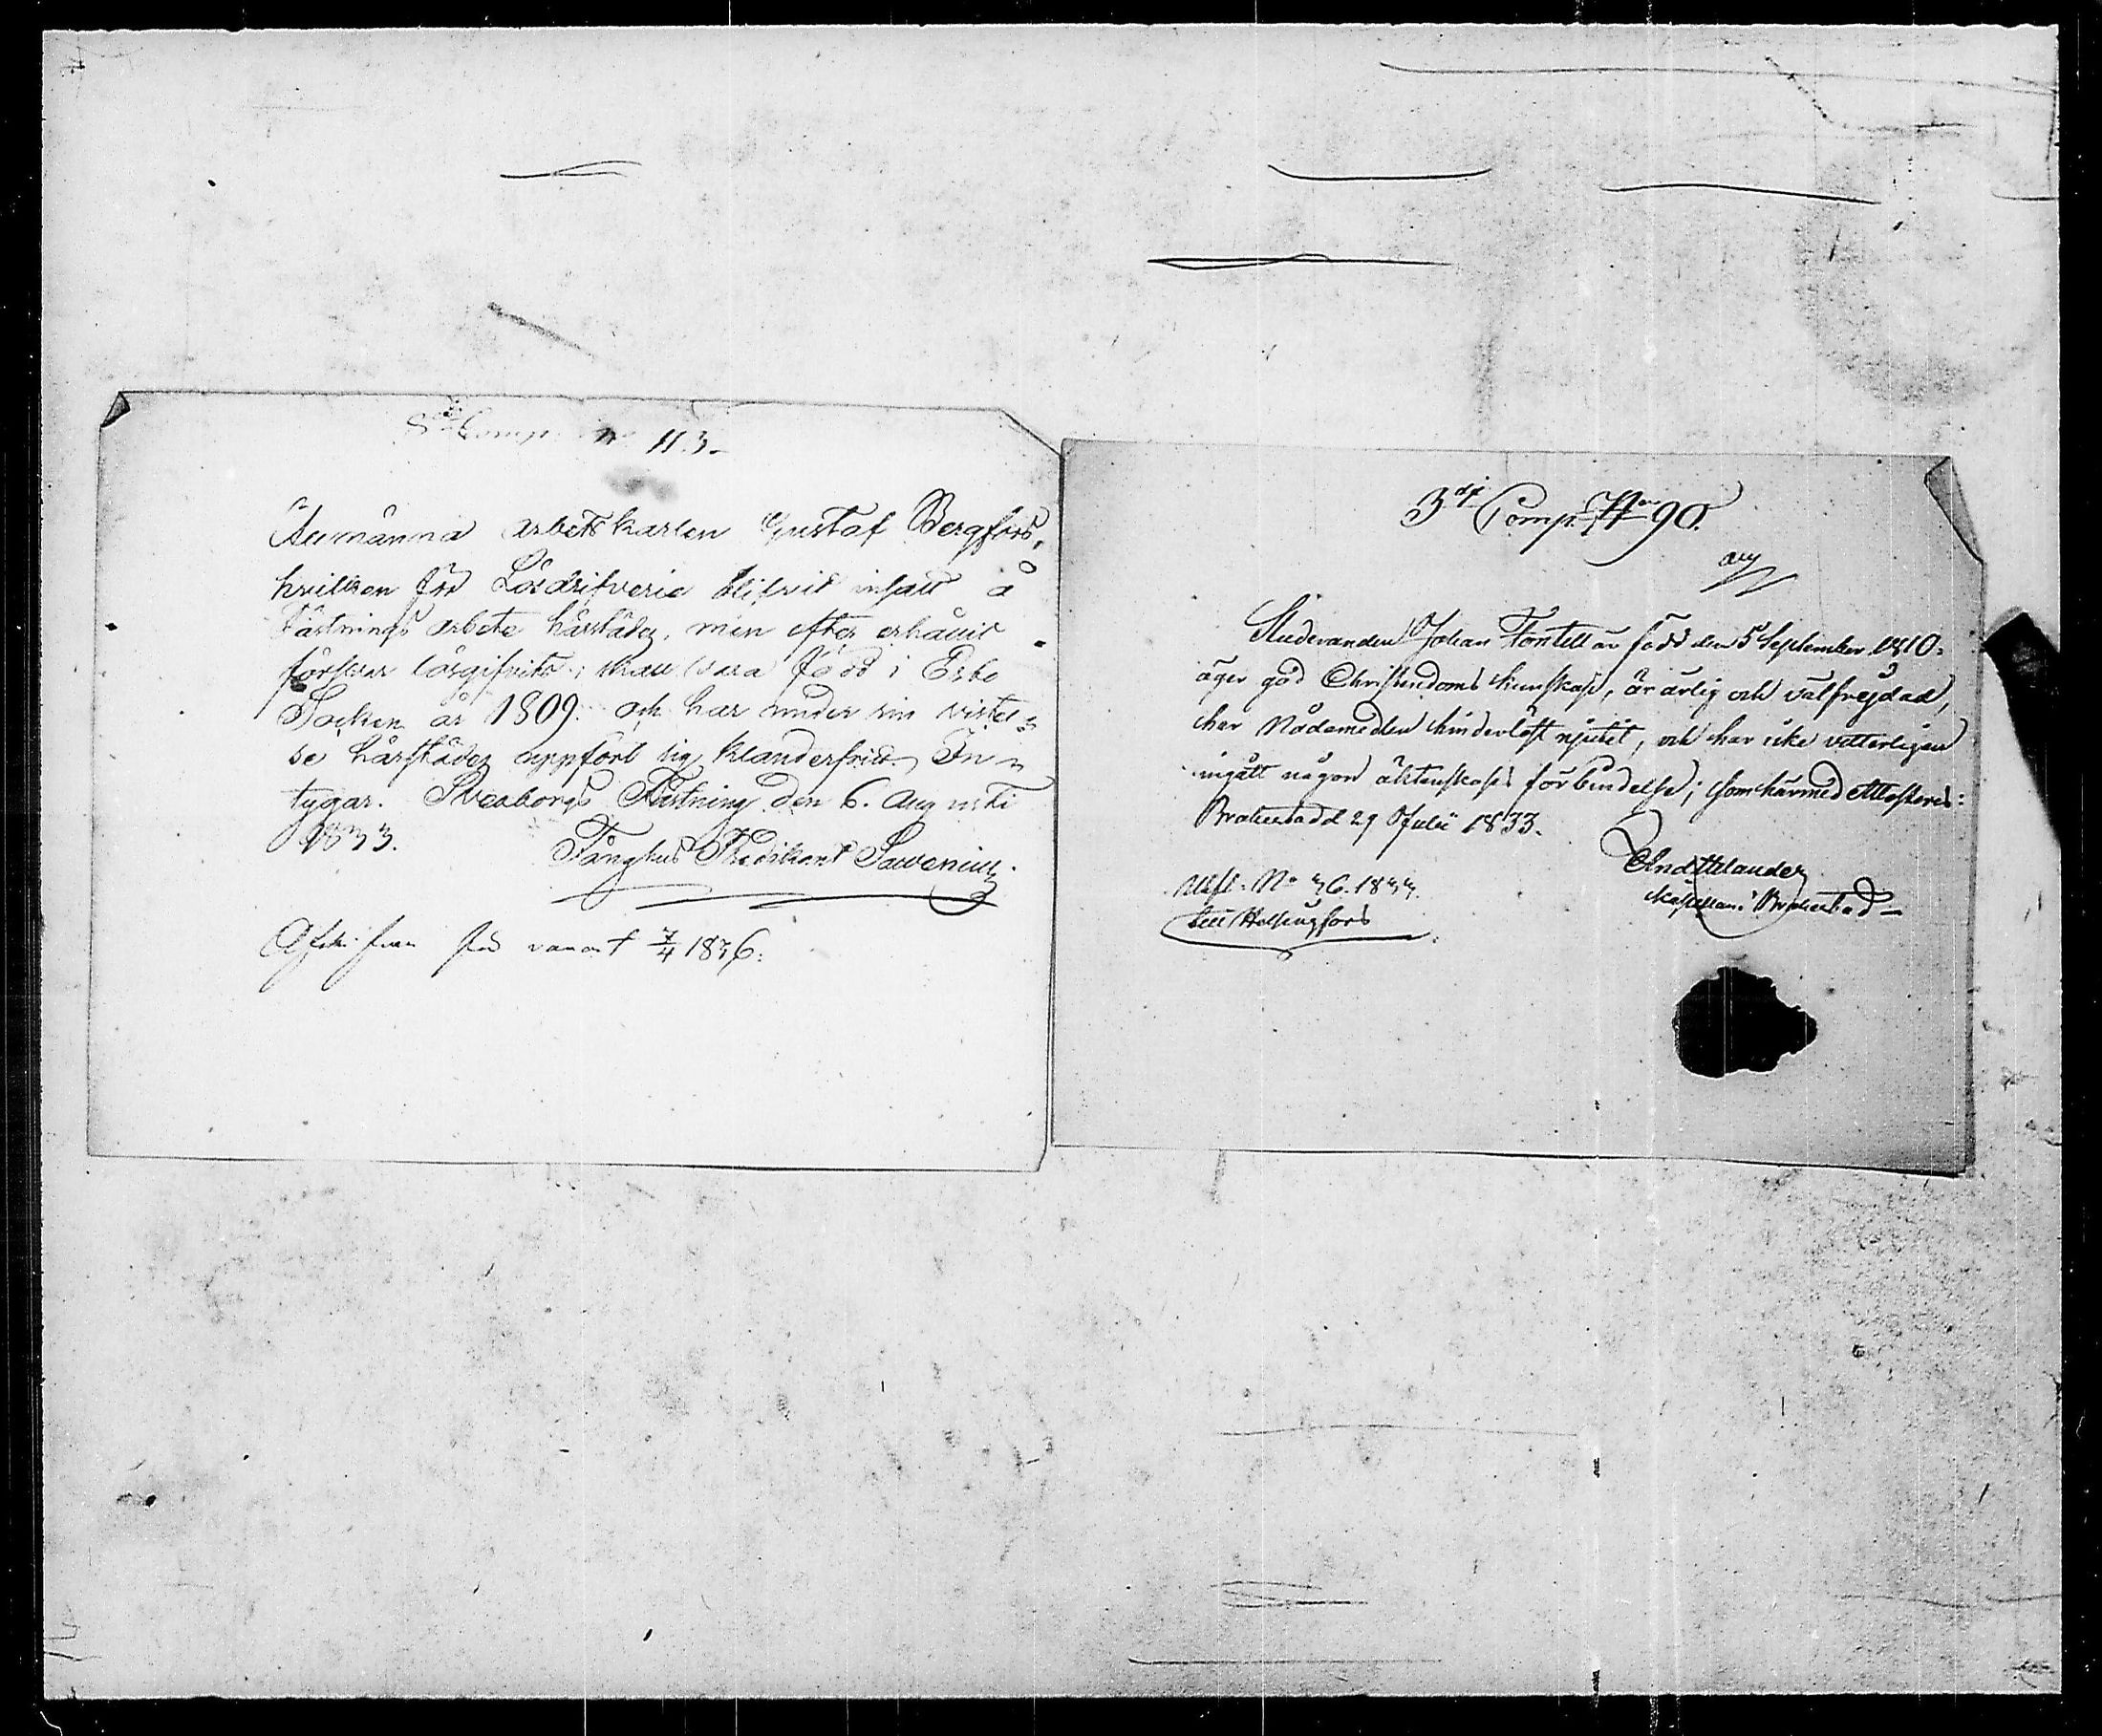 Comp. No 113.
Allmänna arbetskarlen Gustaf Bergfors,
hvilken för Lösdrifveri blifvit insatt å
Fästnings arbete härstädes, men efter erhållit
försvar lösgifvits; skall vara född i Esbo
Socken år 1809. och har under sin vistel=
se härstädes uppfört sig klanderfritt. In=
tygar. Sveaborgs Fästning den 6. Augusti
1833. Fånghus Predikant Savenius.
död 7/4 1836:
3dj Comp. No 90.
Studeranden Johan Fontell är född den 5 September 1810.
äger god Christendoms kunskap, är ärlig och välfrejdad,
har Nådemedlen hinderlöst njutit, och har icke vitterligen
ingått någon äktenskaps förbindelse; som härmed Attesteras:
Brahestad d 29 Julii 1833.
And Helander
Kapellan i Brahestad
Utfl. No 36. 1833.
till Helsingfors